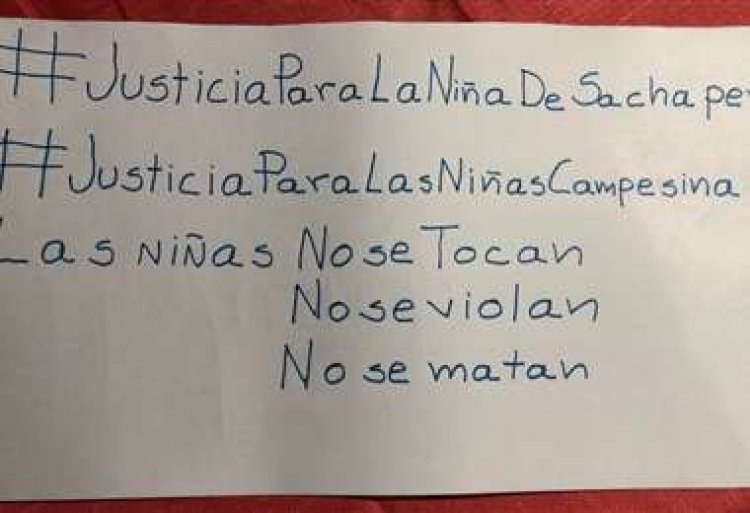 #JusticiaParaLaNiñaDeSachape
#JusticiaParaLasNiñasCampesina
Las NiÑas No se Tocan
No se violan
No se matan